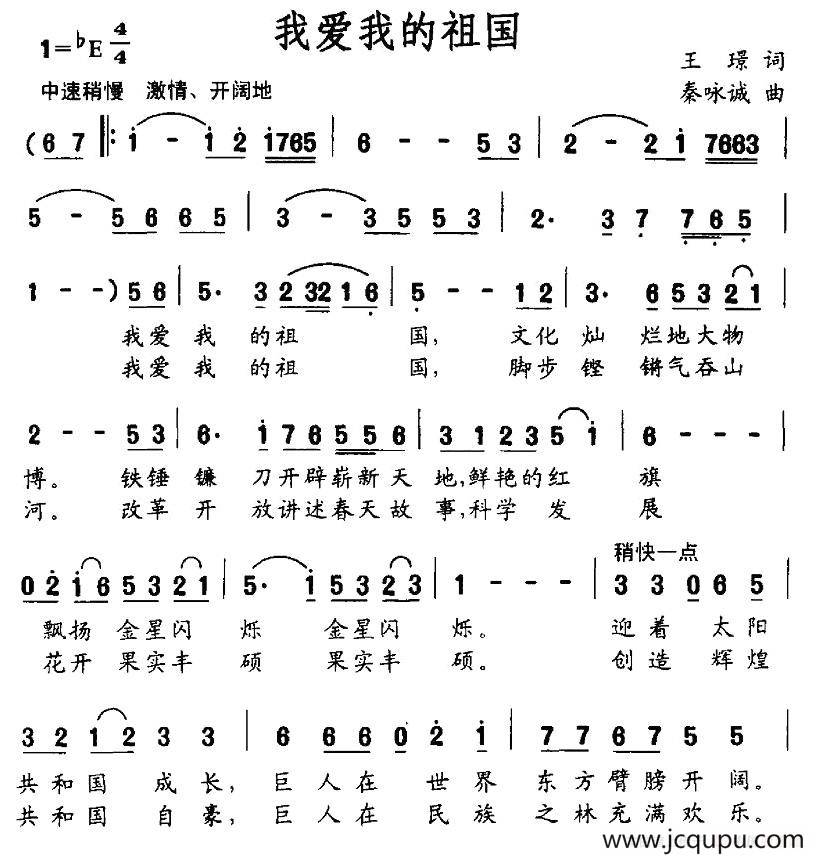 我爱我的祖国
1=♭E 4/4
王 璟 词
中速稍慢 激情、开阔地
秦咏诚 曲
(6 7 ‖: i - i 2̇ i765 | 6 - - 5 3 | 2 - 2 i 7663 |
5 - 5 6 6 5 | 3 - 3 5 5 3 | 2· 3 7̣ 7̣ 6̣ 5̣ |
1 - - ) 5 6 | 5· 3 2 3 2 1 6̣ | 5̣ - - 1 2 | 3· 6 5 3 2 1 |
我爱 我 的祖 国, 文化 灿 烂地大物
我爱 我 的祖 国, 脚步 铿 锵气吞山
2 - - 5 3 | 6· i 7 6 5 5 6 | 3 1 2 3 5 i | 6 - - - |
博。 铁锤 镰 刀开辟崭新天 地,鲜艳的红 旗
河。 改革 开 放讲述春天故 事,科学 发 展
稍快一点
0 2̇ i 6 5 3 2 1 | 5· i 5 3 2 3 | 1 - - - | 3 3 0 6 5 |
飘扬 金星闪 烁 金星闪 烁。 迎着 太阳
花开 果实丰 硕 果实丰 硕。 创造 辉煌
3 2 1 2 3 3 | 6 6 6 0 2̇ i | 7 7 6 7 5 5 |
共和国 成长, 巨人在 世界 东方臂膀开阔。
共和国 自豪, 巨人在 民族 之林充满欢乐。
www.jcqupu.com